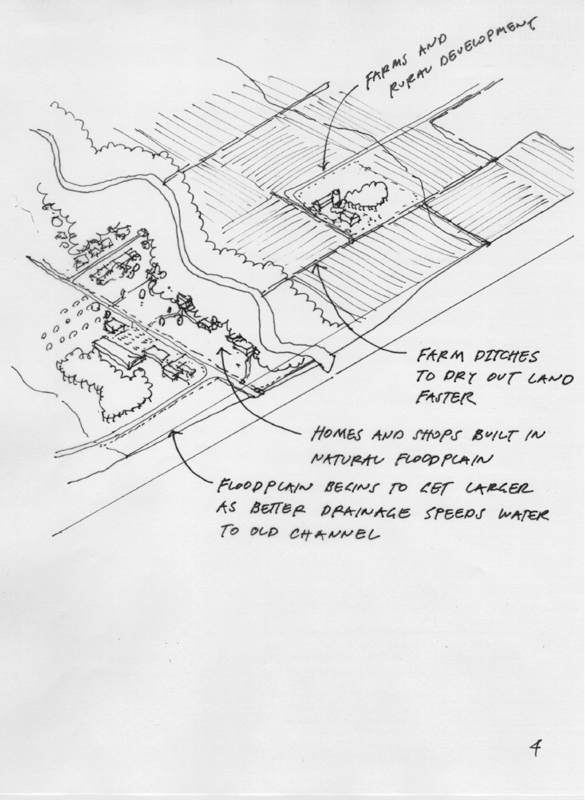 FARMS AND
RURAL DEVELOPMENT
FARM DITCHES
TO DRY OUT LAND
FASTER
HOMES AND SHOPS BUILT IN
NATURAL FLOODPLAIN
FLOODPLAIN BEGINS TO GET LARGER
AS BETTER DRAINAGE SPEEDS WATER
TO OLD CHANNEL
4